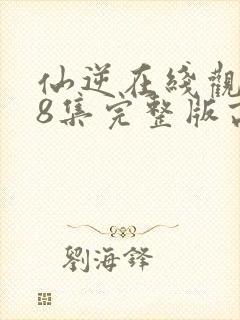 仙逆在綫觀
8集完整版
劉海鋒